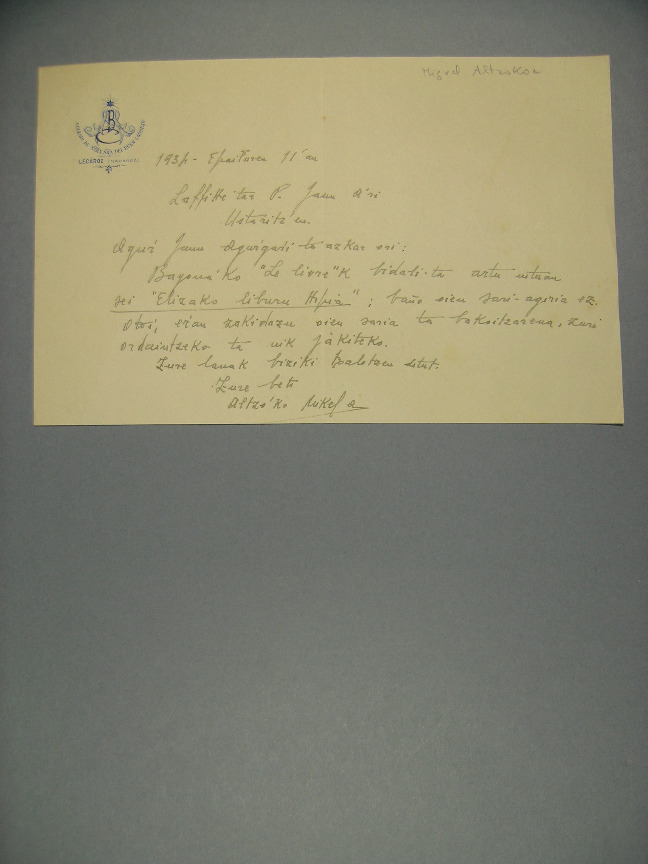 Miguel Altzokoa
B
COLEGIO DE NTRA. SRA. DEL BUEN CONSEJO
LECAROZ (NAVARRA)
193 - Epaillaren 11'an
Laffitte'tar P. Jaun A'ri
Ustaritz'en.
Agur Jaun agurgarri ta azkar ori:
Bayona'ko "Le livre"k bidali-ta artu nituan
sei "Elizako liburu ttipia"; baño oien sari-agiria ez.
Otoi, esan zakidazu oien saria ta bakoitzarena, zuri
ordaintzeko ta nik jakiteko.
Zure lanak biziki goraltzen ditut.
Zure beti
Altzo'ko Mikel a